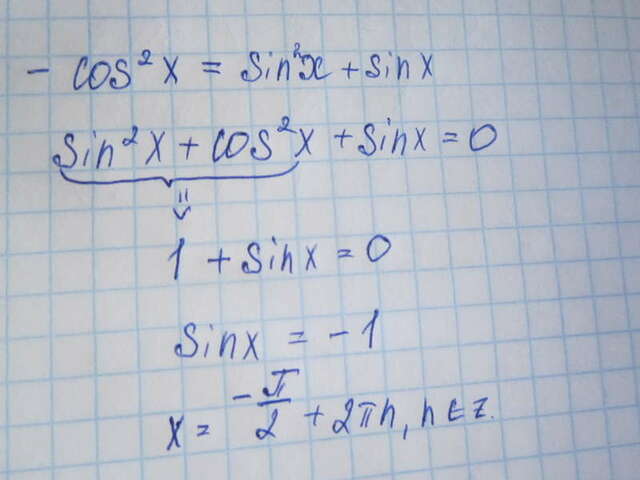 - cos²x = sin²x + sin x
sin²x + cos²x + sin x = 0
1 + sin x = 0
sin x = -1
x = -π/2 + 2πn, n ∈ z.